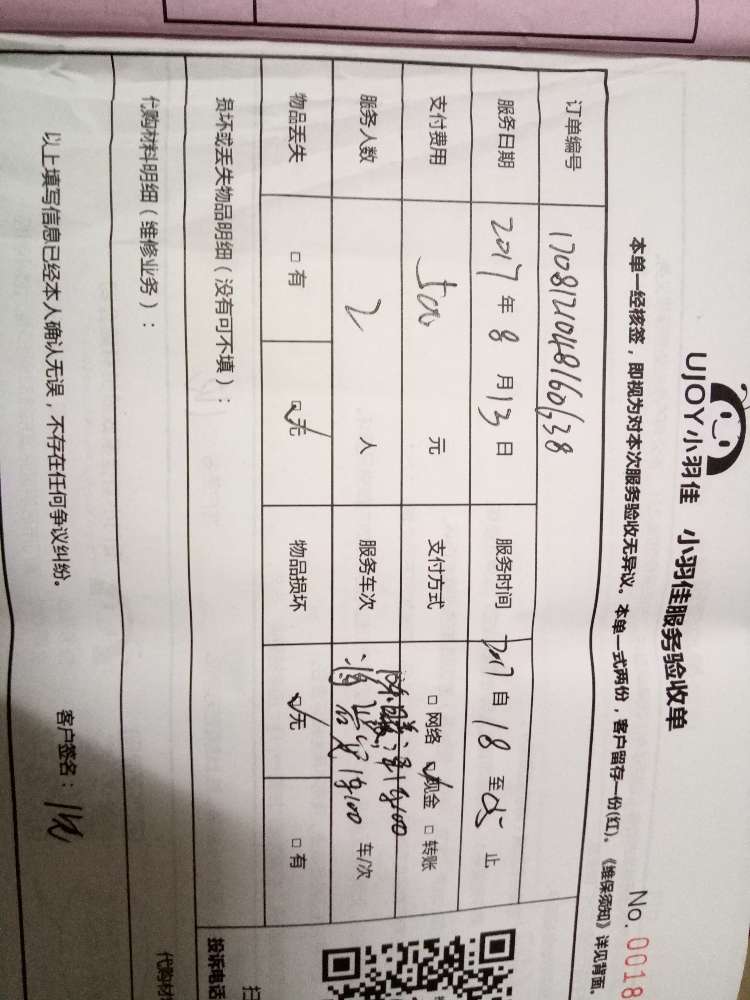 UJOY小羽佳 小羽佳服务验收单
No. 0018
本单一经核签，即视为对本次服务验收无异议。本单一式两份，客户留存一份(红)。《维保须知》详见背面。
订单编号
服务日期 2017 年 8 月 13 日 服务时间 2017 自 18 至 止
支付费用 500 元 支付方式 □ 网络 ☑ 现金 □ 转账
服务人数 2 人 服务车次 车/次
物品丢失 □ 有 ☑ 无 物品损坏 ☑ 无 □ 有
损坏或丢失物品明细（没有可不填）：
代购材料明细（维修业务）：
以上填写信息已经本人确认无误，不存在任何争议纠纷。 客户签名：
扫
投诉电话
代购材